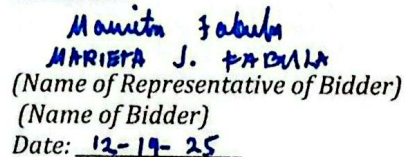 MARIETA J. FABULA
(Name of Representative of Bidder)
(Name of Bidder)
Date: 12-19-25